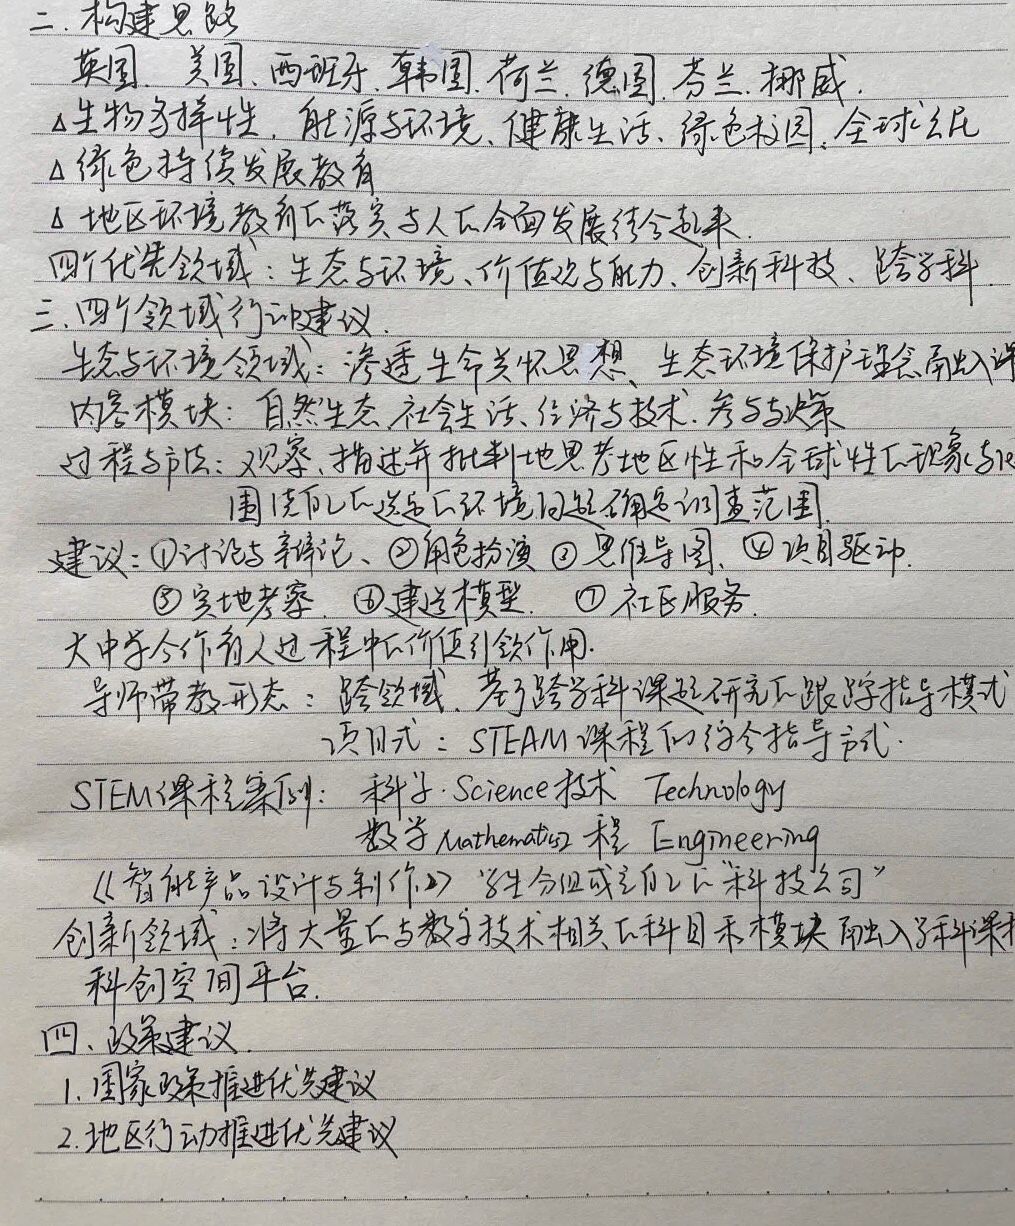 二.构建思路
英国、美国、西班牙、韩国、荷兰、德国、芬兰、挪威.
△生物多样性、能源与环境、健康生活、绿色校园、全球公民
△绿色持续发展教育
△地区环境教育的落实与人的全面发展结合起来.
四个优先领域:生态与环境、价值观与能力、创新科技、跨学科.
三.四个领域行动建议.
生态与环境领域:渗透生命关怀思想、生态环境保护理念融入课
内容模块:自然生态、社会生活、经济与技术、参与与决策
过程与方法:观察、描述并批判地思考地区性和全球性的现象与
围绕自己的选定的环境问题确定调查范围.
建议:①讨论与辩论、②角色扮演 ③思维导图、④项目驱动.
⑤实地考察、⑥建造模型. ⑦社区服务.
大中学合作育人过程中的价值引领作用.
导师带教形态:跨领域、基于跨学科课题研究的跟踪指导模式
项目式:STEAM课程的综合指导方式.
STEM课程案例:科学·Science 技术 Technology
数学 Mathematics 程 Engineering
《智能产品设计与制作》"学生分组成立自己的"科技公司"
创新领域:将大量的与数字技术相关的科目和模块融入学科课程
科创空间平台.
四、政策建议.
1.国家政策推进优先建议
2.地区行动推进优先建议